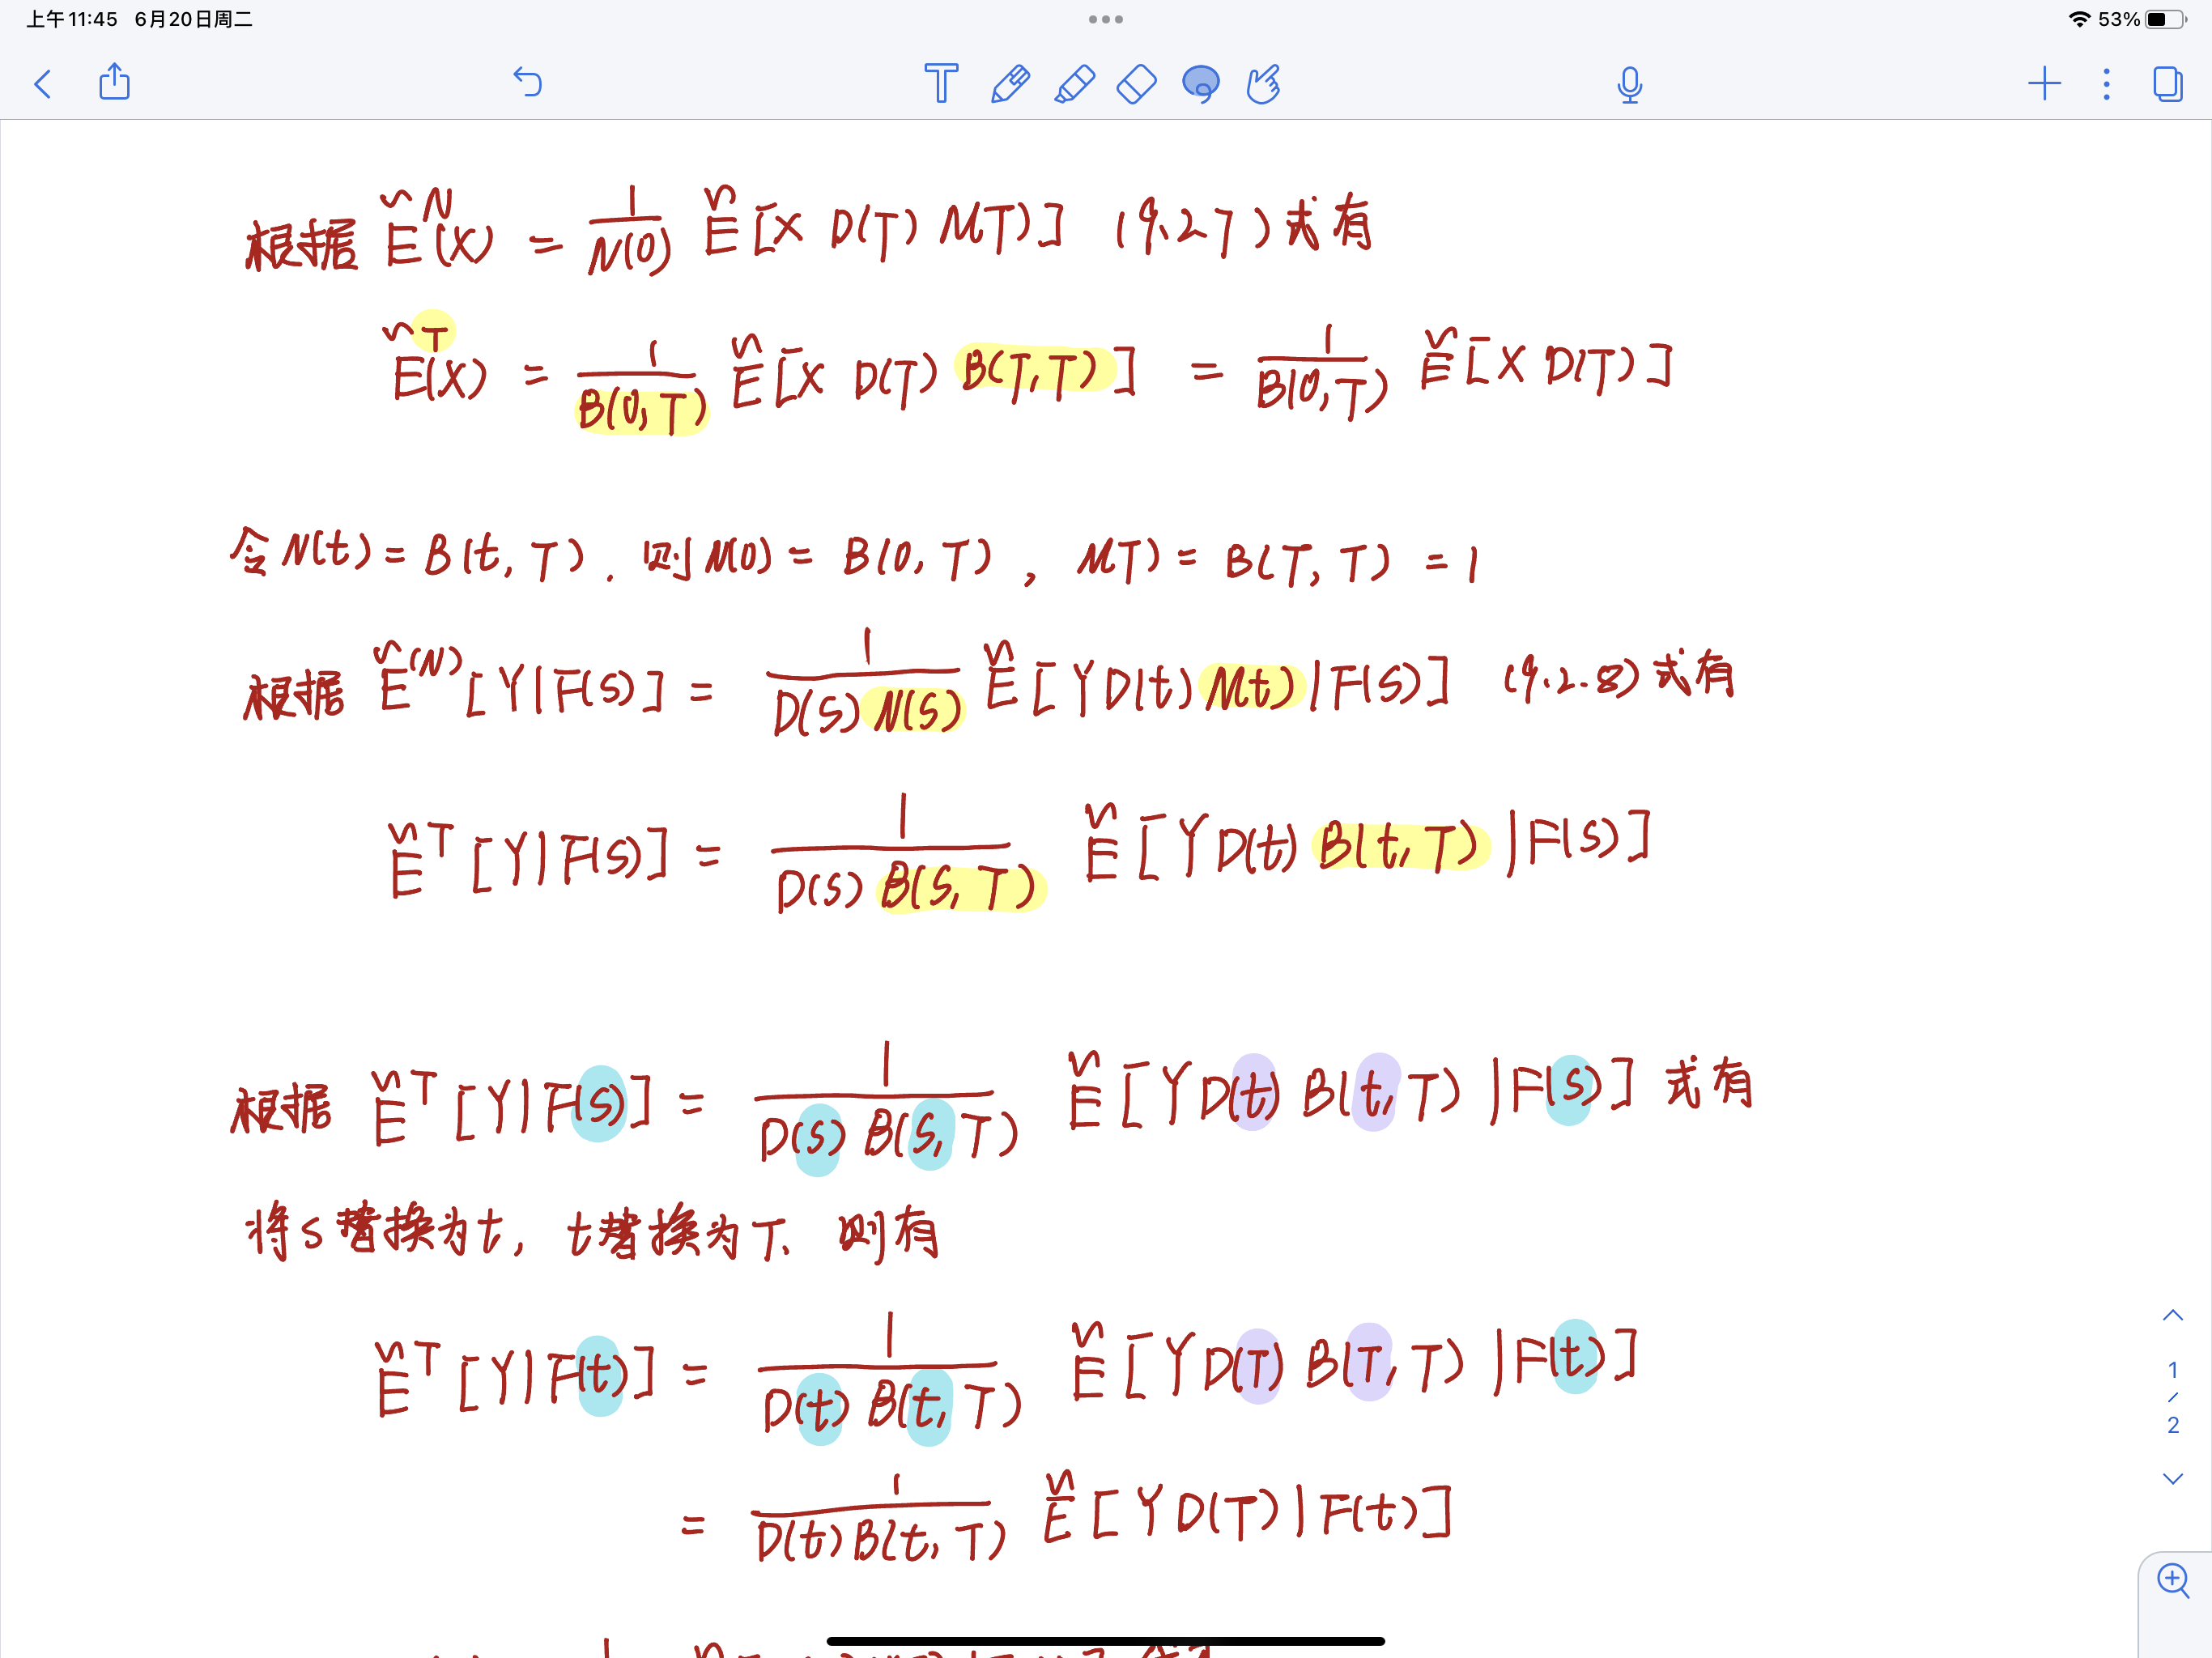 上午11:45 6月20日周二
53%
根据 Ẽᴺ(X) = 1/N(0) Ẽ[X D(T) N(T)] (9.2.7) 式有
Ẽᵀ(X) = 1/B(0,T) Ẽ[X D(T) B(T,T)] = 1/B(0,T) Ẽ[X D(T)]
令 N(t) = B(t,T). 则 N(0) = B(0,T), N(T) = B(T,T) = 1
根据 Ẽ⁽ᴺ⁾[Y|F(s)] = 1/D(s)N(s) Ẽ[Y D(t) N(t)|F(s)] (9.2.8) 式有
Ẽᵀ[Y|F(s)] = 1/D(s)B(s,T) Ẽ[Y D(t) B(t,T)|F(s)]
根据 Ẽᵀ[Y|F(s)] = 1/D(s)B(s,T) Ẽ[Y D(t) B(t,T)|F(s)] 式有
将s替换为t, t替换为T、则有
Ẽᵀ[Y|F(t)] = 1/D(t)B(t,T) Ẽ[Y D(T) B(T,T)|F(t)]
= 1/D(t)B(t,T) Ẽ[Y D(T)|F(t)]
1
/
2